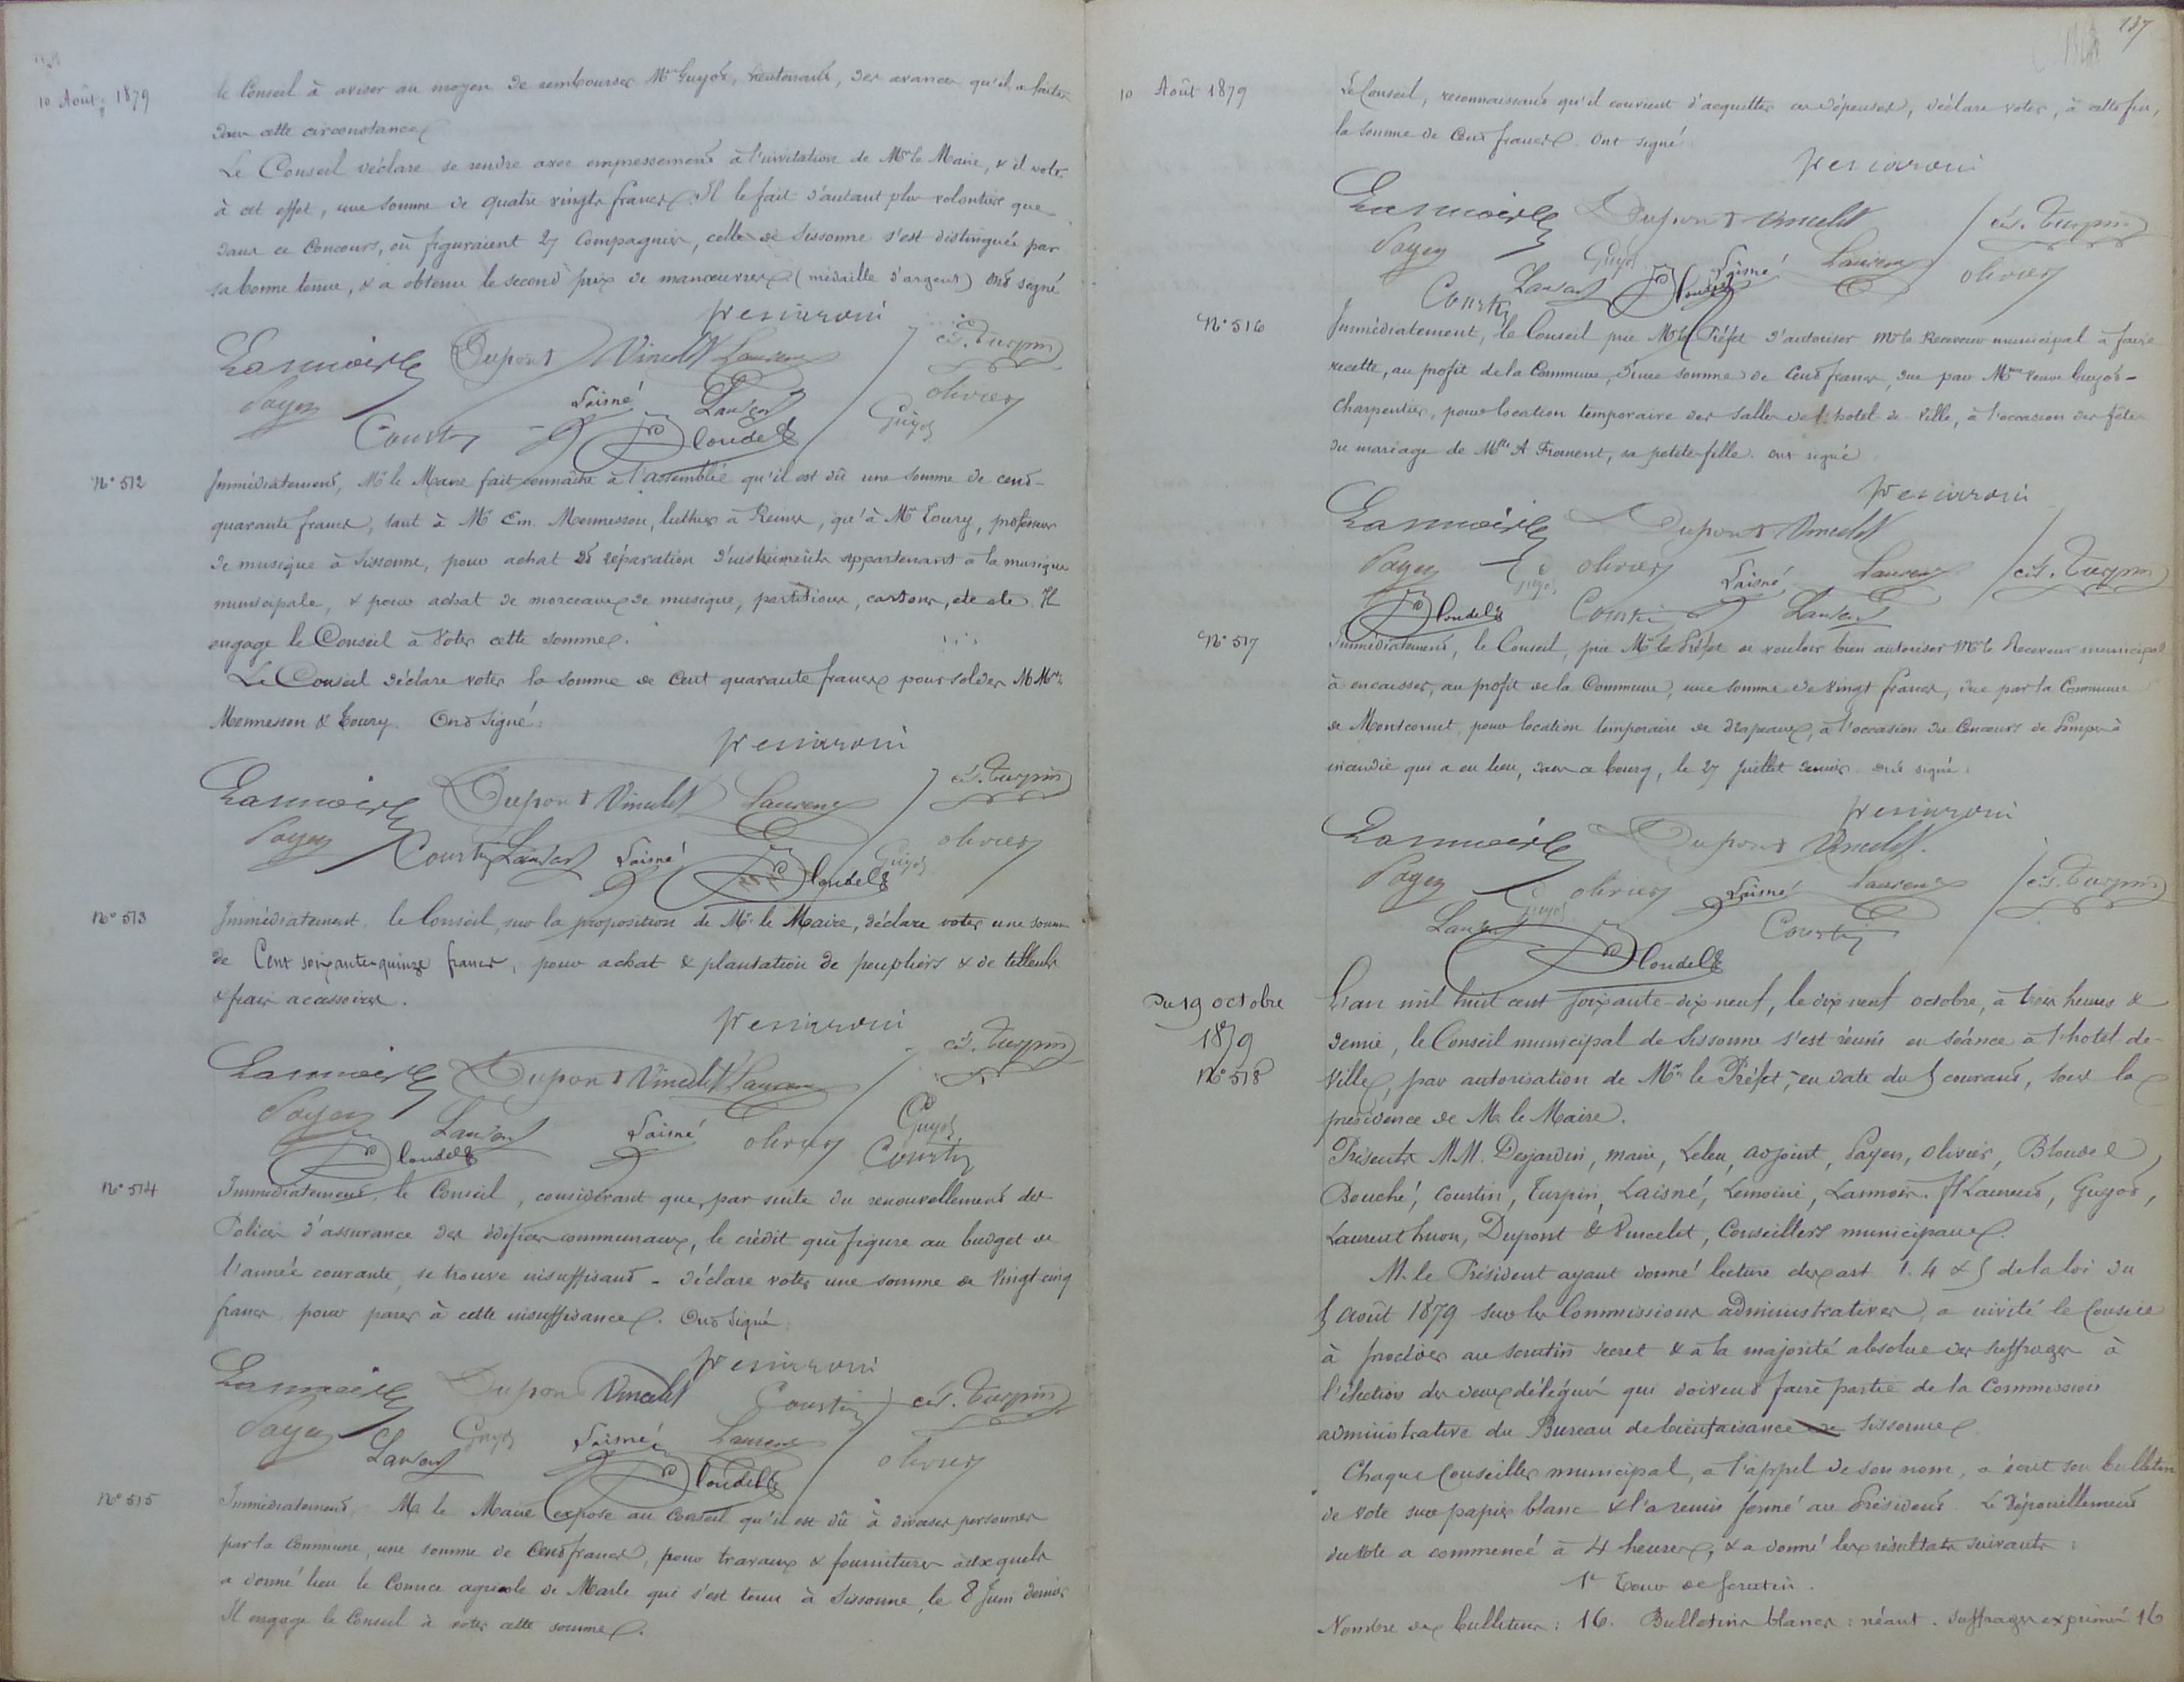 10 Août 1879
le Conseil à aviser au moyen de rembourser Mr Guyot, lieutenant, des avances qu'il a faites
dans cette circonstance.
Le Conseil déclare se rendre avec empressement à l'invitation de Mr le Maire, & il vote
à cet effet, une somme de quatre vingts francs. Il le fait d'autant plus volontiers que
dans ce Concours, où figuraient 27 Compagnies, celle de Sissonne s'est distinguée par
sa bonne tenue, & a obtenu le second prix de manœuvres (médaille d'argent) Ont signé
Lannois Dupont Vincelet Laurent Turpin
Payen Laisné Laurent olivier
Courtin Blondel Guyot
N° 512
Immédiatement, Mr le Maire fait connaître à l'assemblée qu'il est dû une somme de cent-
quarante francs, tant à Mr Em. Mennesson, luthier à Reims, qu'à Mr Toury, professeur
de musique à Sissonne, pour achat et réparation d'instruments appartenant à la musique
municipale, & pour achat de morceaux de musique, partitions, cartons, etc etc. Il
engage le Conseil à voter cette somme.
Le Conseil déclare voter la somme de Cent quarante francs pour solder M Mrs
Mennesson & Toury. Ont signé:
Lannois Dupont Vincelet Laurent Turpin
Payen Courtin Laurent Laisné Blondel Guyot olivier
N° 513
Immédiatement, le Conseil, sur la proposition de Mr le Maire, déclare voter une somme
de Cent soixante-quinze francs, pour achat & plantation de peupliers & de tilleuls
& frais accessoires.
Lannois Dupont Vincelet Laurent Turpin
Payen Laurent Laisné olivier Guyot
Blondel Courtin
N° 514
Immédiatement, le Conseil, considérant que, par suite du renouvellement des
Polices d'assurance des édifices communaux, le crédit qui figure au budget de
l'année courante, se trouve insuffisant - déclare voter une somme de Vingt-cinq
francs, pour parer à cette insuffisance. Ont signé:
Lannois Dupont Vincelet Courtin Turpin
Payen Laurent Guyot Laisné Laurent olivier
Blondel
N° 515
Immédiatement, Mr le Maire expose au Conseil qu'il est dû à diverses personnes
par la Commune, une somme de Cent francs, pour travaux & fournitures auxquels
a donné lieu le Comice agricole de Marle qui s'est tenu à Sissonne, le 8 Juin dernier
Il engage le Conseil à voter cette somme.
187
10 Août 1879
Le Conseil, reconnaissant qu'il convient d'acquitter ces dépenses, déclare voter, à cette fin,
la somme de Cent francs. Ont signé
Lannois Dupont Vincelet Turpin
Payen Guyot Laisné Laurent olivier
Courtin Laurent Blondel
N° 516
Immédiatement, le Conseil prie Mr le Préfet d'autoriser Mr le Receveur municipal à faire
recette, au profit de la Commune, d'une somme de Cent francs, due par Mme Veuve Guyot-
Charpentier, pour location temporaire des salles de l'hotel de Ville, à l'occasion des fêtes
du mariage de Mlle A Froment, sa petite-fille. ont signé
Lannois Dupont Vincelet
Payen Guyot olivier Laisné Laurent Turpin
Blondel Courtin Laurent
N° 517
Immédiatement, le Conseil, prie Mr le Préfet de vouloir bien autoriser Mr le Receveur municipal
à encaisser, au profit de la Commune, une somme de Vingt francs, due par la Commune
de Montcornet, pour location temporaire de drapeaux, à l'occasion du Concours de Pompes à
incendie qui a eu lieu, dans ce bourg, le 27 Juillet dernier. ont signé:
Lannois Dupont Vincelet
Payen Guyot olivier Laisné Laurent Turpin
Laurent Courtin
Blondel
Du 19 octobre
1879
N° 518
L'an mil huit cent soixante-dix-neuf, le dix neuf octobre, à trois heures &
demie, le Conseil municipal de Sissonne s'est réuni en séance à l'hotel de-
Ville, par autorisation de Mr le Préfet, en date du 5 courant, sous la
présidence de Mr le Maire.
Présents MM. Desjardin, maire, Leleu, adjoint, Payen, Olivier, Blondel,
Bouché, Courtin, Turpin, Laisné, Lemoine, Lannois, Laurent, Guyot,
Laurent huon, Dupont & Vincelet, Conseillers municipaux.
M. le Président ayant donné lecture des art 1. 4 & 5 de la loi du
5 Août 1879 sur les Commissions administratives, a invité le Conseil
à procéder au scrutin secret & à la majorité absolue des suffrages à
l'élection des deux délégués qui doivent faire partie de la Commission
administrative du Bureau de bienfaisance de Sissonne
Chaque Conseiller municipal, à l'appel de son nom, a écrit son bulletin
de vote sur papier blanc & l'a remis fermé au Président. Le Dépouillement
du vote a commencé à 4 heures, & a donné les résultats suivants:
1er Tour de scrutin.
Nombre des bulletins: 16. Bulletins blancs: néant. Suffrages exprimés 16